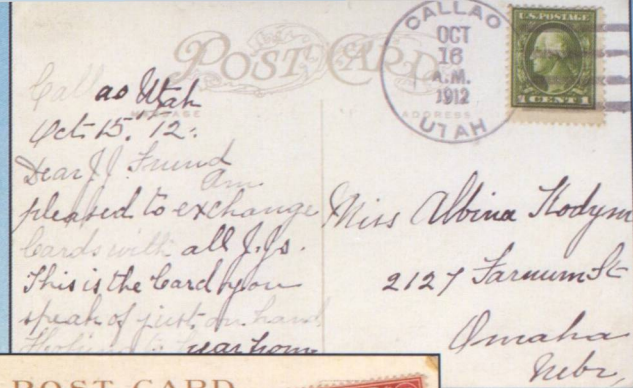 POST CARD
MESSAGE
ADDRESS
CALLAO
OCT
16
A.M.
1912
UTAH
U.S. POSTAGE
1 CENT 1
Callao Utah
Oct. 15. 12.
Dear J.J. Friend
Am
pleased to exchange
Cards with all J.Js.
This is the Card you
speak of just on hand
hear from
Miss Albina Kodym
2127 Farnum St
Omaha
Nebr,
POST CARD